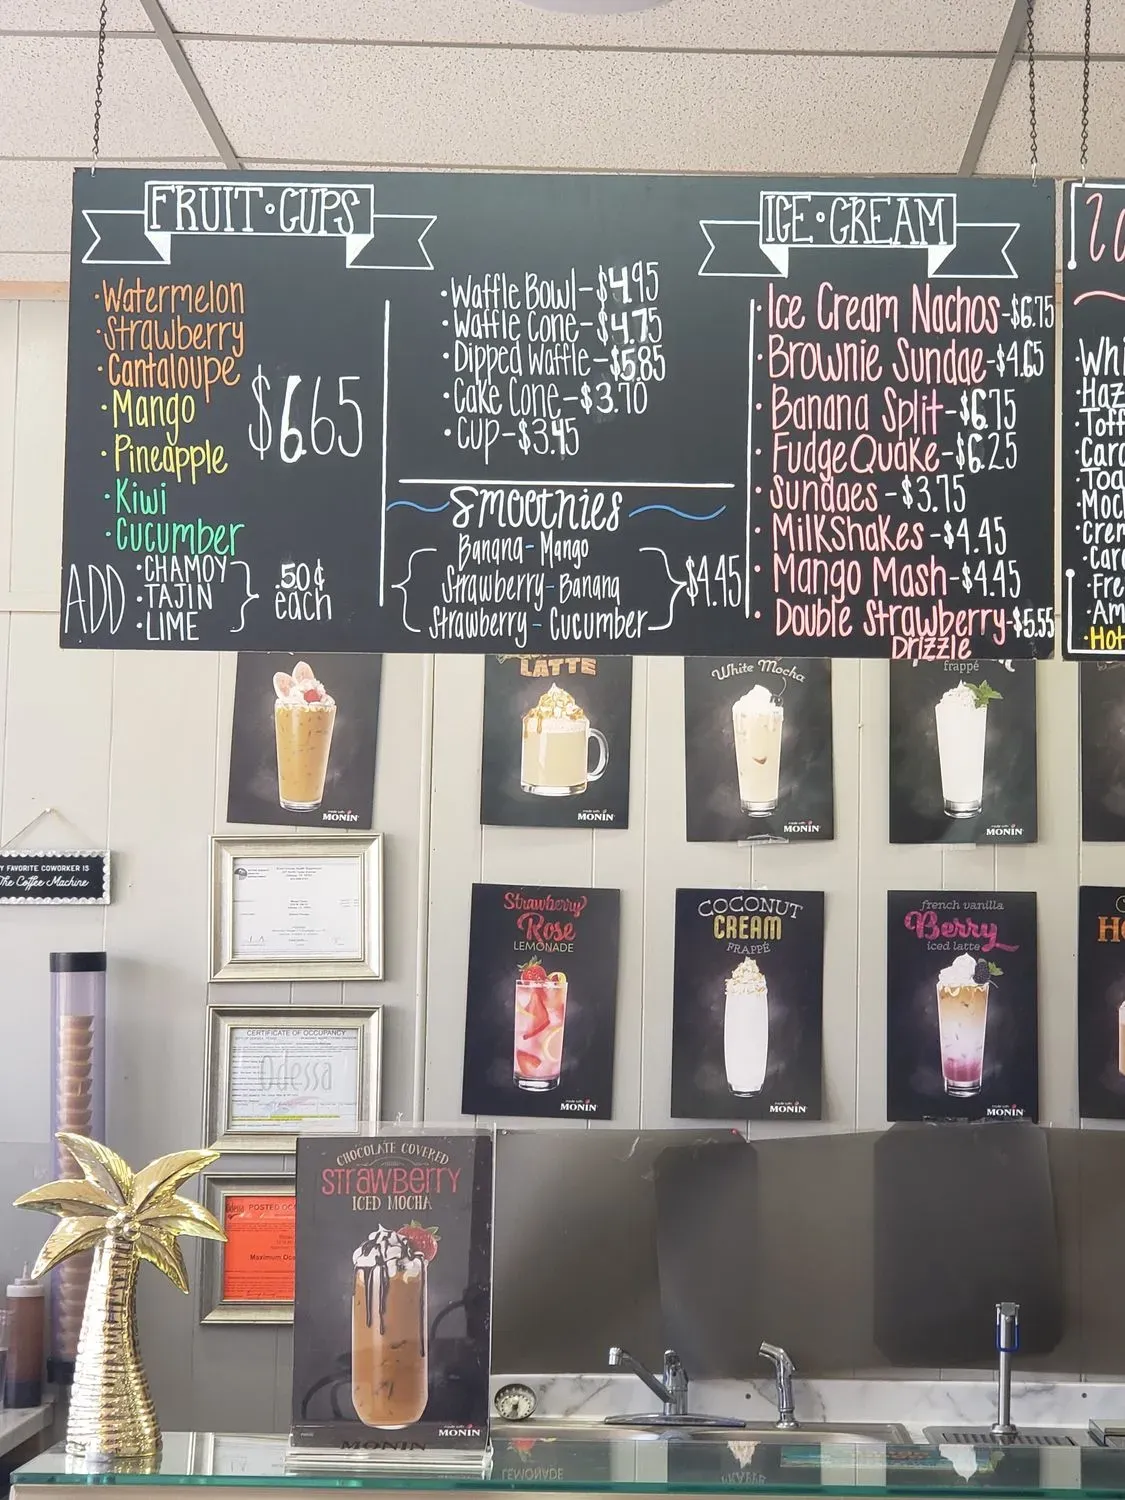 FRUIT·CUPS
·Watermelon
·Strawberry
·Cantaloupe
·Mango
·Pineapple
·Kiwi
·Cucumber
$6.65
ADD
·CHAMOY
·TAJIN
·LIME
.50¢
each
·Waffle Bowl-$4.95
·Waffle Cone-$4.75
·Dipped Waffle-$5.85
·Cake Cone-$3.70
·Cup-$3.45
Smoothies
Banana-Mango
Strawberry-Banana
Strawberry-Cucumber
$4.45
ICE·CREAM
·Ice Cream Nachos-$6.75
·Brownie Sundae-$4.65
·Banana Split-$6.75
·FudgeQuake-$6.25
·Sundaes-$3.75
·MilkShakes-$4.45
·Mango Mash-$4.45
·Double Strawberry-$5.55
Drizzle
·Whi
·Haz
·Toff
·Cara
·Toa
·Moc
·Crem
·Car
·Fre
·Am
·Hot
MONIN
LATTE
made with
MONIN
White Mocha
made with
MONIN
frappé
made with
MONIN
Y FAVORITE COWORKER IS
The Coffee Machine
Strawberry
Rose
LEMONADE
made with
MONIN
COCONUT
CREAM
FRAPPÉ
made with
MONIN
french vanilla
Berry
iced latte
made with
MONIN
HO
CERTIFICATE OF OCCUPANCY
Odessa
Odessa
POSTED OCC
Maximum Occ
CHOCOLATE COVERED
STRAWBERRY
ICED MOCHA
made with
MONIN
MONIN